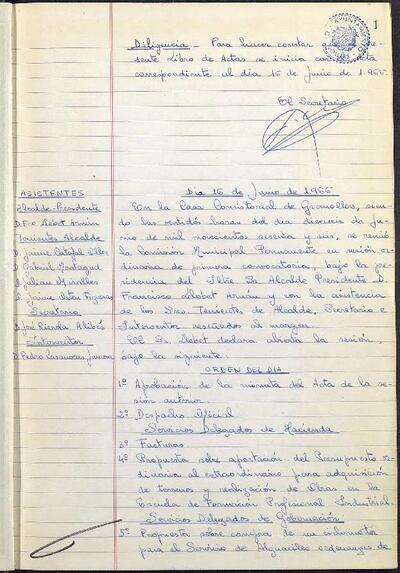 1
Diligencia - Para hacer constar
sente Libro de Actas se inicia con
correspondiente al día 16 de junio de 1.966.
El Secretario
ASISTENTES
Alcalde-Presidente
D. Fco Llobet Arnán
Tenientes Alcalde
D. Jaime
D. Gabriel
D. Jaime
Secretario
D. José
Interventor
D. Pedro
Dia 16 de Junio de 1966
En la Casa Consistorial de Granollers, sien-
do las veintidós horas del día dieciseis de ju-
nio de mil novecientos sesenta y seis, se reunió
la Comisión Municipal Permanente en sesión or-
dinaria de primera convocatoria, bajo la pre-
sidencia del Iltre Sr Alcalde Presidente D.
Francisco Llobet Arnán y con la asistencia
de los Sres. Tenientes de Alcalde, Secretario e
Interventor reseñados al margen.
El Sr. Llobet declara abierta la sesión,
bajo la siguiente:
ORDEN DEL DIA
1º Aprobación de la minuta del Acta de la se-
sión anterior
2º Despacho Oficial
Servicios Delegados de Hacienda
3º Facturas
4º Propuesta sobre aportación del Presupuesto or-
dinario al extraordinario para adquisición
de terrenos y realización de Obras en la
Escuela de Formación Profesional Industrial.
Servicios Delegados de Gobernación
5º Propuesta sobre compra de un ciclomotor
para el Servicio de Alguaciles ordenanzas de